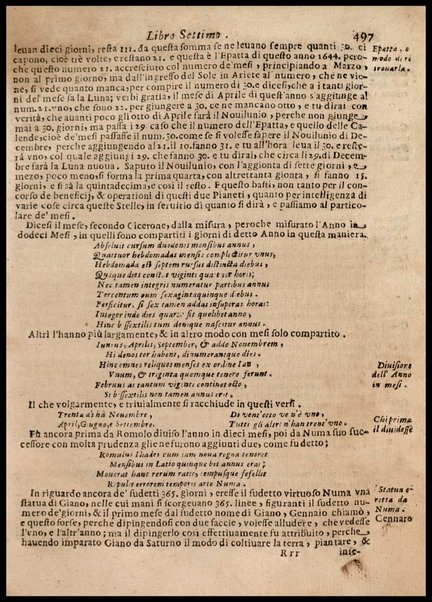 Libro Settimo. 497
leuan dieci giorni, resta 111. da questa somma se ne leuano sempre quanti 30. ci
capono, cioè trè volte, e restano 21. e questa è l'Epatta di questo anno 1644. pero-
che questo numero 21. accresciuto col numero de' mesi, principiando à Marzo,
non al primo giorno, ma dall'ingresso del Sole in Ariete al numero, che ne vie-
ne, si vede quanto manca, per compire il numero di 30. e dicesi, che à tanti gior-
ni del mese fà la Luna; verbi gratia, il mese di Aprile di quest'anno s'aggiunge al
num. 21. vno, che sono 22. per giungere a 30. ce ne mancano otto, e tu dirai con
verità, che auanti poco gli otto di Aprile farà il Nouilunio, perche non giunge
mai a 30. giorni, ma passa i 29. caso che il numero dell'Epatta, e quello delle Ca-
lende, cioè de' mesi passasse il num. 30. come se si volesse sapere il Nouilunio di De-
cembre, perche aggiungendo al 21. il 10. fanno 31. e tu all'hora leua il 30. e reste-
rà vno, col quale aggiungi i 29. che fanno 30. e tu dirai, che circa li 29. di Decem-
bre farà la Luna nuoua. Saputo il Nouilunio, con l'aggionta di sette giorni, e
mezo, poco meno, si forma la prima quarta, con altrettanta gionta, si fanno 15.
giorni, e si sà la quintadecima, e così il resto. E questo basti, non tanto per il con-
corso de beneficij, & operationi di questi due Pianeti, quanto per intelligenza di
varie cose circa queste Stelle, in seruitio di quanto si dirà, e passiamo al particu-
lare de' mesi.
Epatta, e
modo di ri
trouarla.
Dicesi il mese, secondo Cicerone, dalla misura, peroche misurato l'Anno in
dodeci Mesi, in quelli sono compartiti i giorni di detto Anno in questa maniera.
Absoluit cursum duodenis mensibus annus,
Quattuor hebdomadas mensis complectitur vnus,
Hebdomada est septem rursus distincta diebus,
Quaque dies constat viginti quatuor horis;
Nec tamen integris numeratur partibus annus
Tercentum cum sexagintaquinque diebus.
Perficitur, si sex tamen addas insuper horas:
Integer inde dies quarto fit quolibet anno,
Hinc bissextilis tum denique nascitur annus.
Altri l'hanno più largamente, & in altro modo con mesi solo compartito.
Iunius, Aprilis, September, & adde Nouembrem,
Hi denos ter habent, di numerantque dies.
Hinc omnes reliquos menses ex ordine Iani,
Vnum, & triginta quemque tenere ferunt.
Februus at tantum viginti continet octo,
Si bissextilis non tamen annus erit.
Diuisione
dell'Anno
in mesi.
Il che volgarmente, e triuialmente si racchiude in questi versi.
Trenta dì hà Nouembre,
April, Giugno, e Settembre.
Di vent'otto ve n'è vno,
Tutti gli altri n'han trent'vno.
Chi prima
il diuidesse
Fù ancora prima da Romolo diuiso l'Anno in dieci mesi, poi da Numa suo suc-
cessore con molta prudenza gliene furono aggiunti due, come fu detto;
Romulus Iliades cum iam noua regna teneret
Mensibus in Latio quinque bis annus erat;
Mouerat hanc rerum ratio, tempusque fefellit
Repulit errorem temporis arte Numa.
In riguardo ancora de' sudetti 365. giorni, eresse il sudetto virtuoso Numa vna
statua di Giano, nelle cui mani si scorgeuano 365. linee, figuranti il sudetto nu-
mero de' giorni, & il primo mese dal sudetto nome di Giano, Gennaio chiamò,
e questo forse, perche dipingendosi con due faccie, volesse alludere, che vedesse
l'vno, e l'altr'anno; ma il dipingerlo così effettiuamente fù per altro, perche
hauendo imparato Giano da Saturno il modo di coltiuare la terra, piantare, &
Statua e-
retta da
Numa.
Gennaro
Rrr inse-